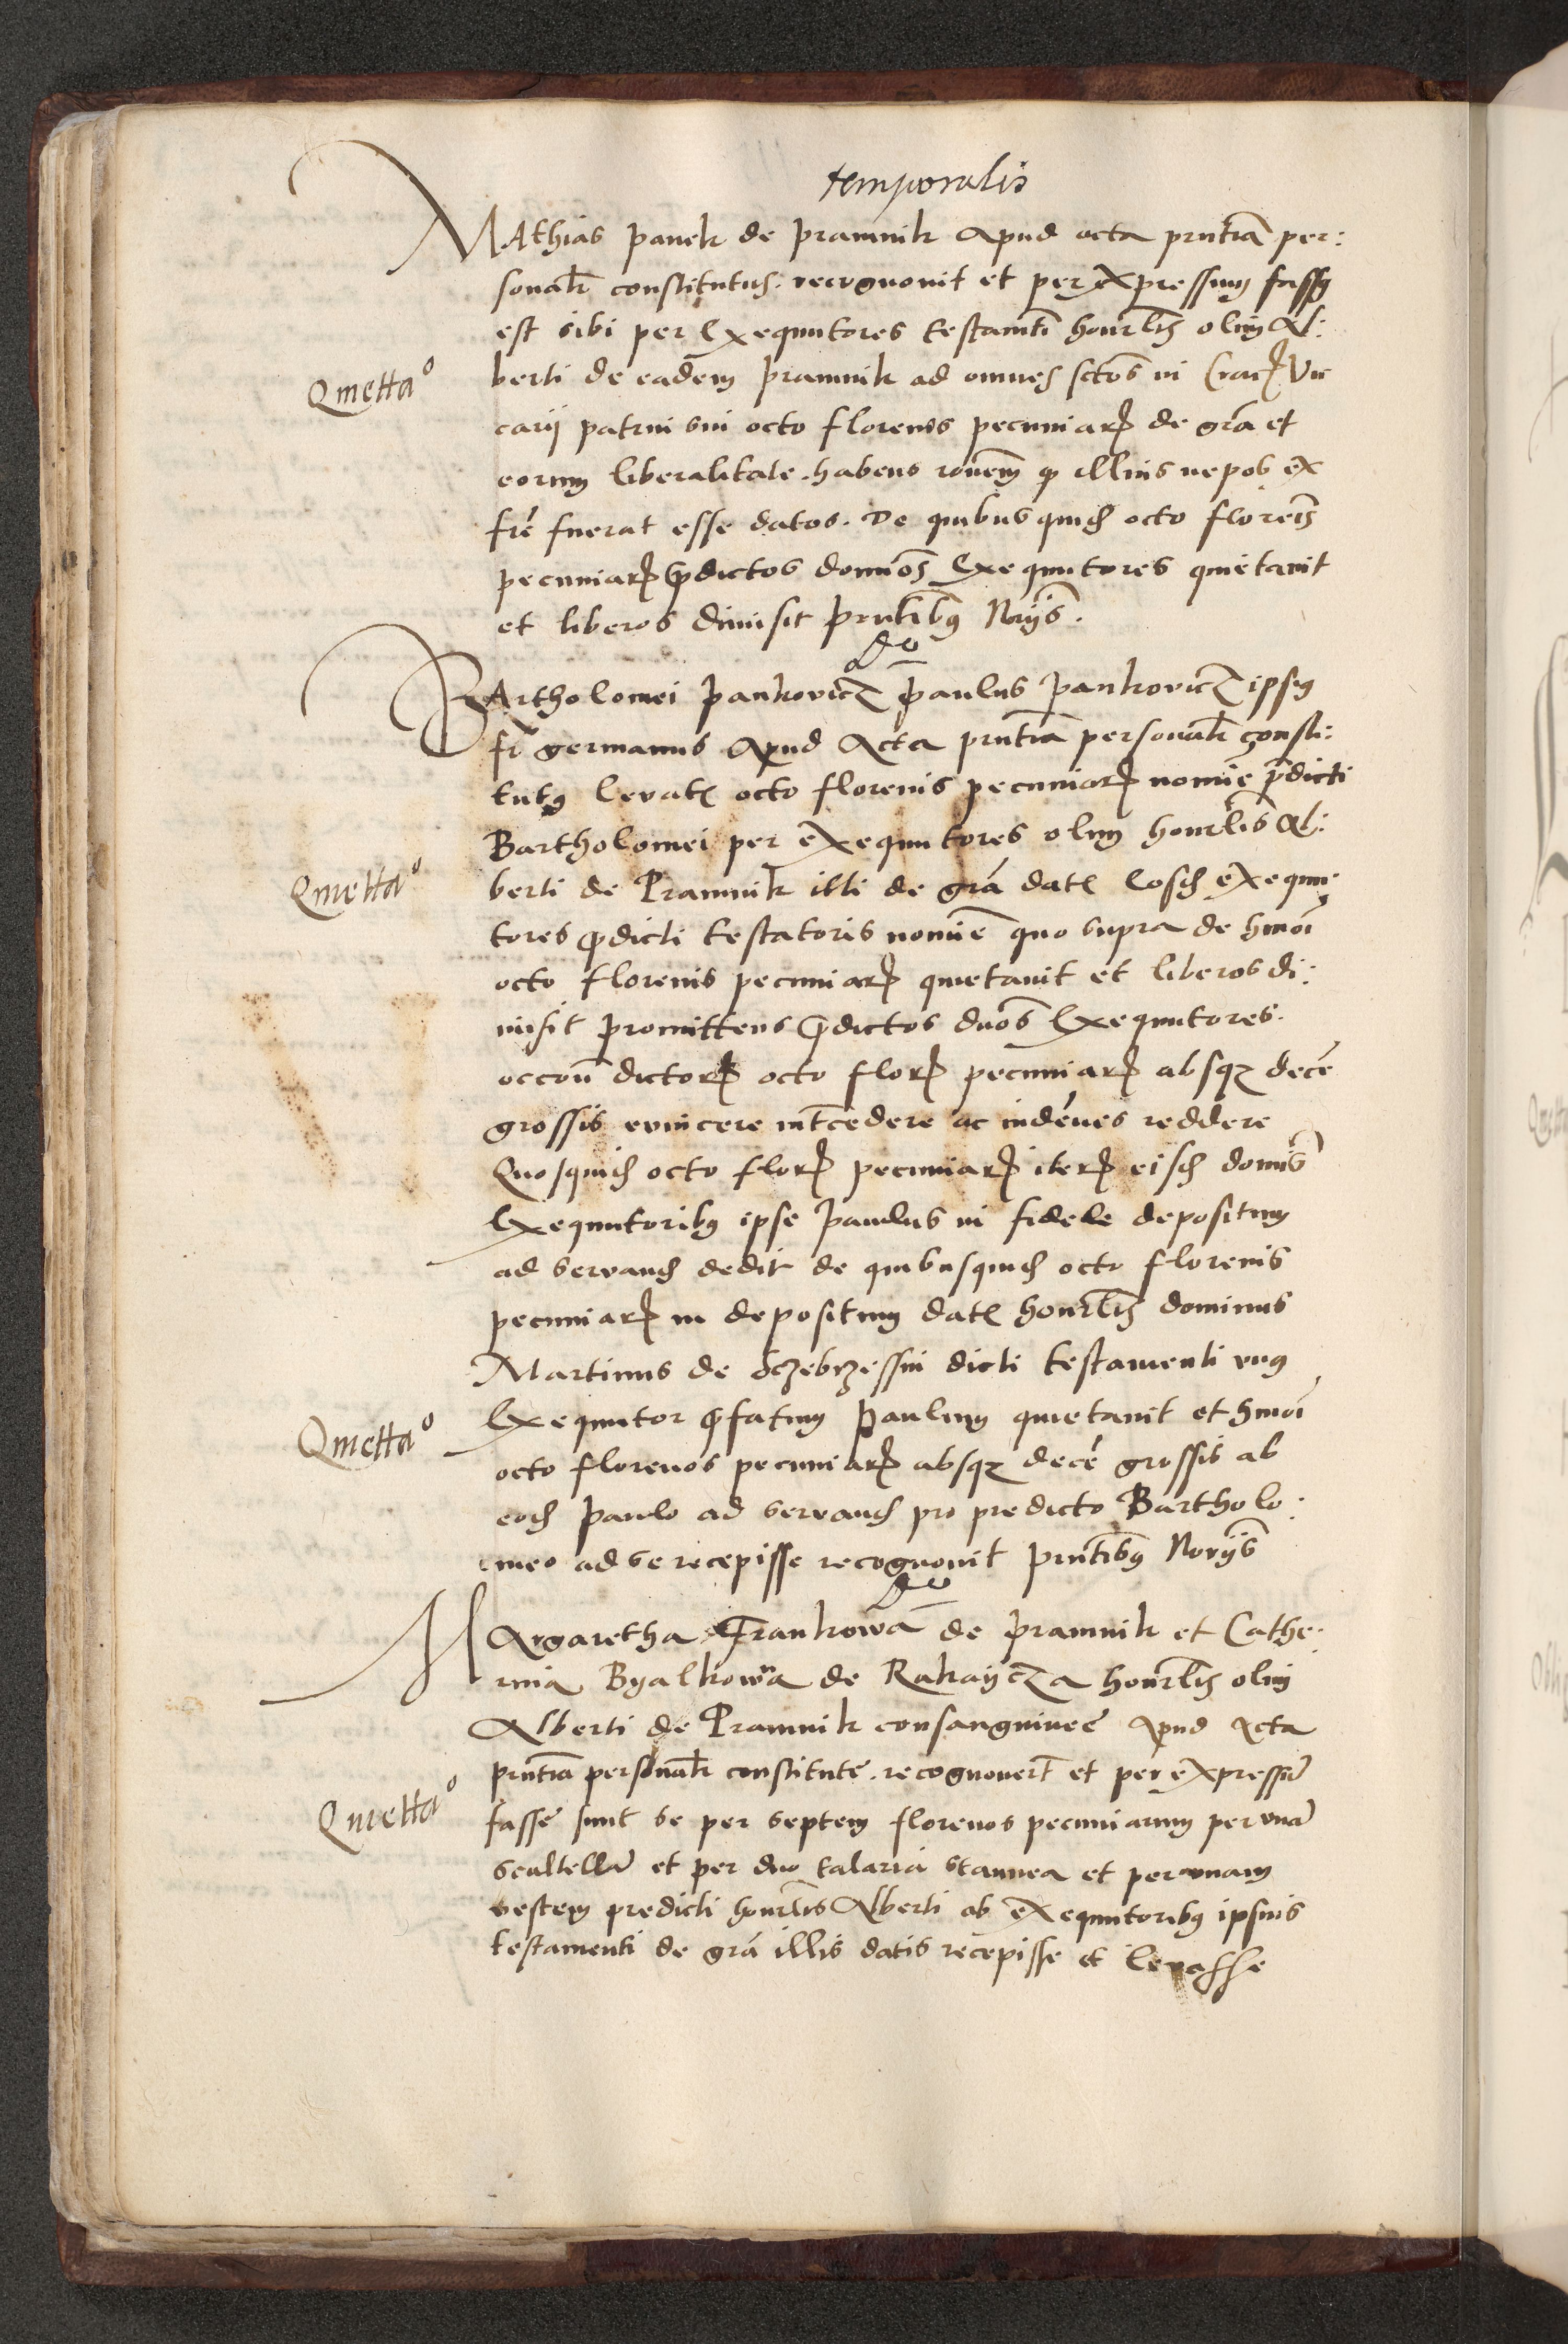 temporalis
MAthias panek de pramnik apud acta pñtia per:
sonalr̃ constitutus. recognouit et per expressum fassus
est sibi per Exequutores testamẽti honorĩlis olim Al:
Qmetta⁰
berti de eadem pramnik ad omnes sctõs in Crac Vi
carij patrui sui octo florenos pecuniar de grã et
eorum liberalitate. habens rõnem q illius nepos ex
frẽ fuerat esse datos. De quibus quid octo florenis
pecuniar pdictos dominos Exequutores quietauit
et liberos dimisit pñtibus Norijs.
BArtholomei pankovicz paulus pankovicz ipsius
fr̃ germanus apud Acta pñtia personalr̃ consti:
tutus levatis octo florenis pecuniar nomine pdicti
Bartholomei per exequutores olim honorĩlis Al:
Qmetta⁰
berti de Pramnik illi de grã datis Eosd exequu:
tores pdicti testatoris nomine quo supra de hmõi
octo florenis pecuniar quietauit et liberos di:
misit promittens pdictos dnos Exequutores.
occõne dictor octo flor pecuniar absqz decẽ
grossis evincere intcedere ac indẽnes reddere
Quosquid octo flor pecuniar iter eisd dominis
Exequutoribus ipse paulus in fidele depositum
ad servand dedit de quibusquid octo florenis
pecuniar in depositum datis honorĩlis dominus
Martinus de Sczebrzessin dicti testamenti unus
Qmetta⁰
Exequutor pfatum paulum quietauit et hmõi
octo florenos pecuniar absqz decẽ grossis ab
eod paulo ad servand pro predicto Bartholo:
meo ad se recepisse recognouit pñtibus Norijs
MArgaretha Frankowa de pramnik et Cathe:
rina Byalkowa de Rakaycza honorĩlis olim
Alberti de Pramnik consanguinee apud Acta
pñtia personalr̃ constitute. recognouert̃ et per expressũ
Qmetta⁰
fasse sunt se per septem florenos pecuniarum per unã
scultellã et per duo talaria stannea et per unam
vestem predicti honorĩlis Alberti ab exequutoribus ipsius
testamenti de grã illis datis recepisse et levasse